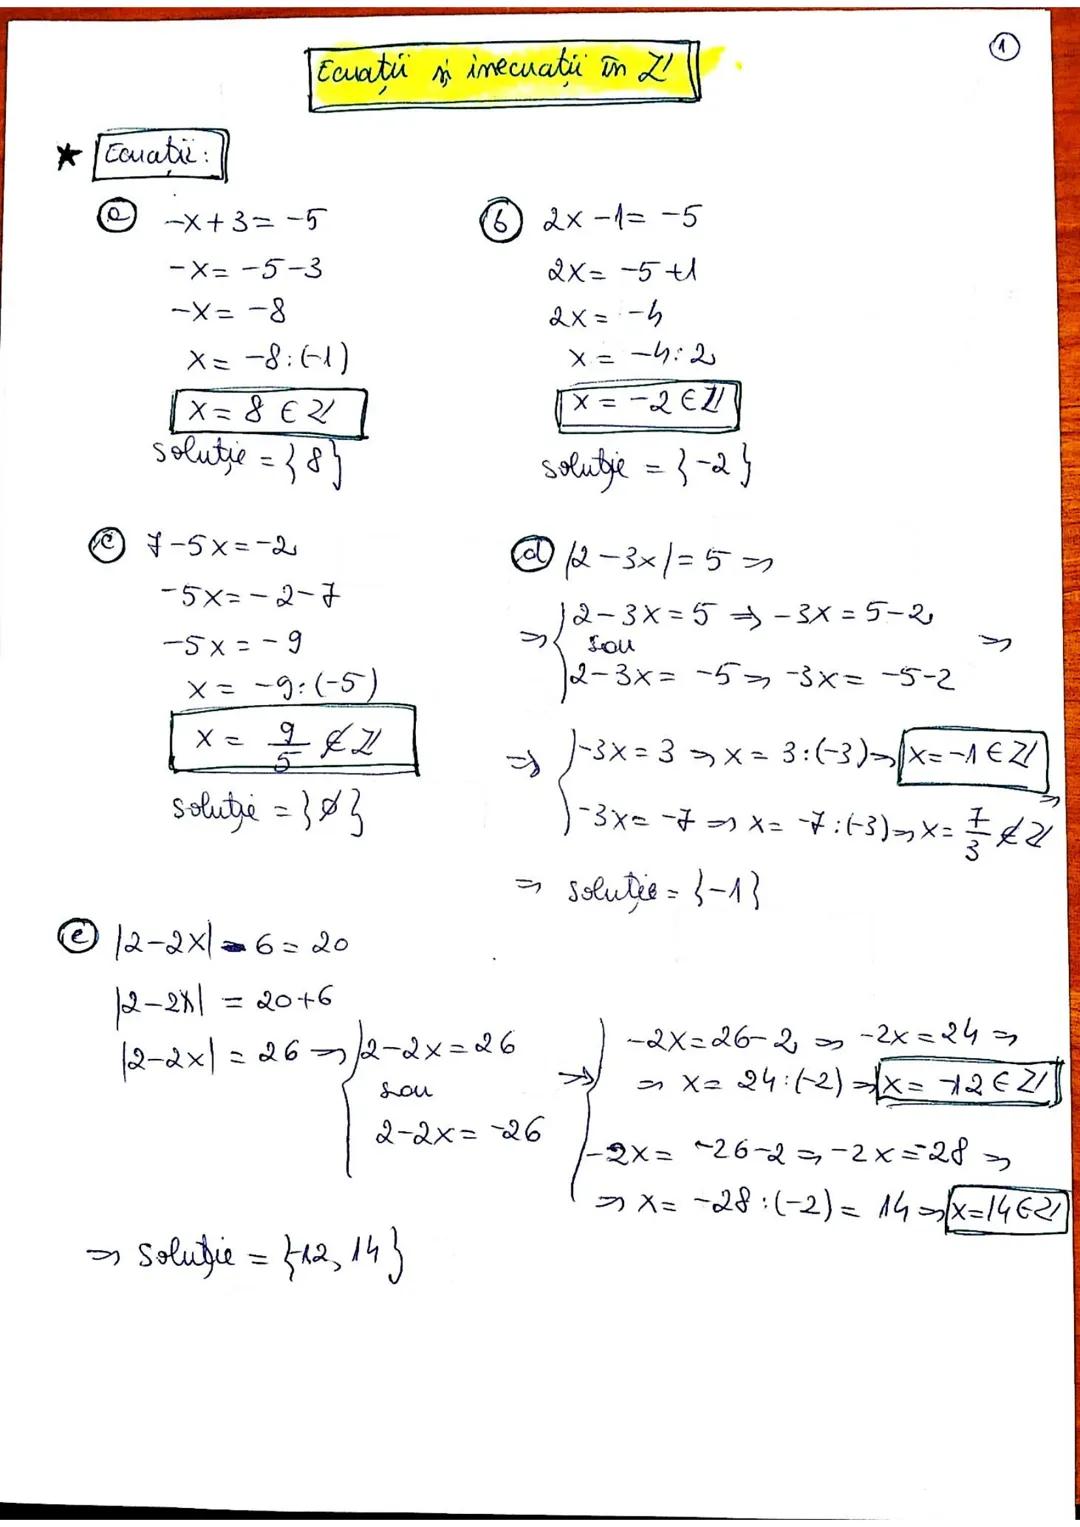 1
Ecuații și inecuații în ℤ
★ Ecuații:
ⓐ -x+3=-5
-x=-5-3
-x=-8
x=-8:(-1)
x=8∈ℤ
soluție={8}
ⓑ 2x-1=-5
2x=-5+1
2x=-4
x=-4:2
x=-2∈ℤ
soluție={-2}
ⓒ 7-5x=-2
-5x=-2-7
-5x=-9
x=-9:(-5)
x=9/5∉ℤ
soluție={∅}
ⓓ |2-3x|=5⇒
⇒{2-3x=5⇒-3x=5-2
sau ⇒
2-3x=-5⇒-3x=-5-2
⇒{-3x=3⇒x=3:(-3)⇒x=-1∈ℤ
-3x=-7⇒x=-7:(-3)⇒x=7/3∉ℤ ⇒
⇒ soluție={-1}
ⓔ |2-2x|-6=20
|2-2x|=20+6
|2-2x|=26⇒{2-2x=26
sau
2-2x=-26
⇒{-2x=26-2⇒-2x=24⇒
⇒x=24:(-2)⇒x=-12∈ℤ
-2x=-26-2⇒-2x=-28⇒
⇒x=-28:(-2)=14⇒x=14∈ℤ
⇒ soluție={-12,14}